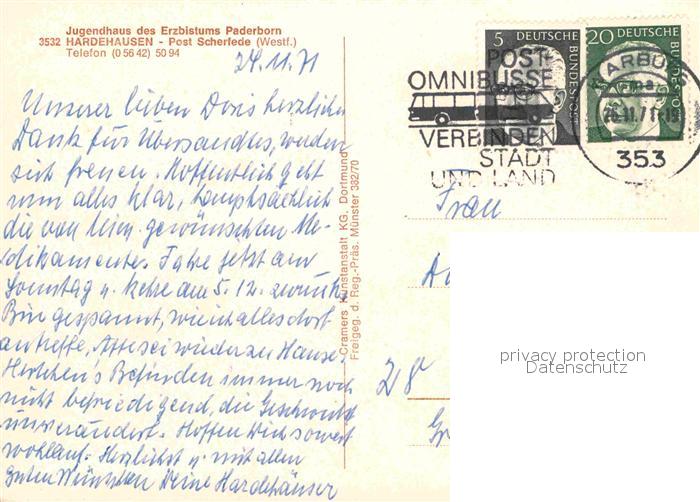 Jugendhaus des Erzbistums Paderborn
3532 HARDEHAUSEN - Post Scherfede (Westf.)
Telefon (0 56 42) 50 94
24.11.71
Unserer lieben Doris herzlichen
Dank für Übersandtes, werden
sich freuen. Hoffentlich geht
nun alles klar, hauptsächlich
die von gewünschten Me-
dikamente. Fahre jetzt am
Sonntag u. kehre am 5.12. zurück.
Bin gespannt, wie ich alles dort
antreffe, sei wieder zu Hause,
Befinden immer noch
nicht befriedigend, die Geschwulst
unverändert. Hoffen Dich soweit
wohlauf. Herzlichst u. mit allen
guten Wünschen Deine Hardehäuser
Cramers Kunstanstalt KG. Dortmund
Freigeg. d. Reg.-Präs. Münster 382/70
POST-
OMNIBUSSE
VERBINDEN
STADT
UND LAND
5
DEUTSCHE
BUNDESPOST
20
DEUTSCHE
BUNDESPOST
353
Frau
28
privacy protection
Datenschutz